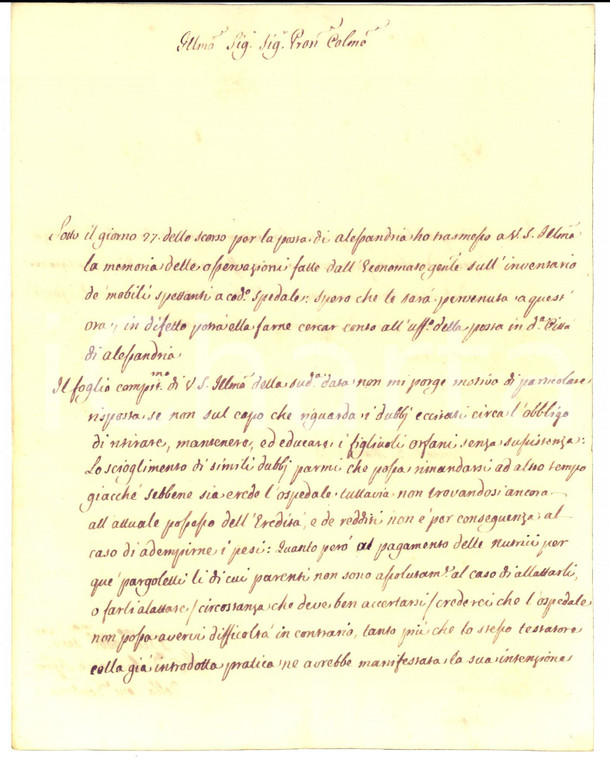 Illmo Sig. Sig. Pron Colmo
Sotto il giorno 27. dello scorso per la posta di alessandria ho trasmesso a V. S. Illma
la memoria delle osservazioni fatte dall'Economato gen.le sull'inventario
de' mobili spettanti a cod.o spedale: spero che le sarà pervenuta a quest'
ora, in difetto potrà ella farne cercar conto all'uff.o della posta in d.a Città
di alessandria.
Il foglio compit.mo di V S. Illma della sud.a data non mi porge motivo di particolare
risposta se non sul capo che riguarda i dubbj eccitati circa l'obbligo
di ritirare, mantenere, ed educare i figliuoli orfani senza sussistenza:
Lo scioglimento di simili dubbj parmi che possa rimandarsi ad altro tempo
giacché sebbene sia erede l'ospedale tuttavia non trovandosi ancora
all'attuale possesso dell'Eredità, e de redditi non è per conseguenza al
caso di adempirne i pesi: Quanto però al pagamento delle nutrici per
que' pargoletti li di cui parenti non sono assolutam.e al caso di allattarli,
o farli alattare / circostanza che deve ben accertarsi / crederei che l'ospedale
non possa avervi difficoltà in contrario, tanto più che lo stesso testatore
colla già introdotta pratica ne avrebbe manifestata la sua intenzione